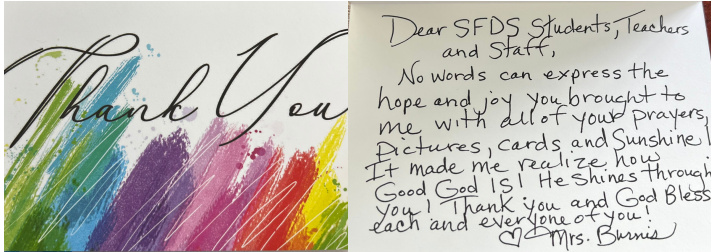 Thank You
Dear SFDS Students, Teachers
and Staff,
No words can express the
hope and joy you brought to
me with all of your prayers,
Pictures, cards and Sunshine!
It made me realize how
Good God IS! He shines through
you! Thank you and God Bless
each and everyone of you!
♡ Mrs.